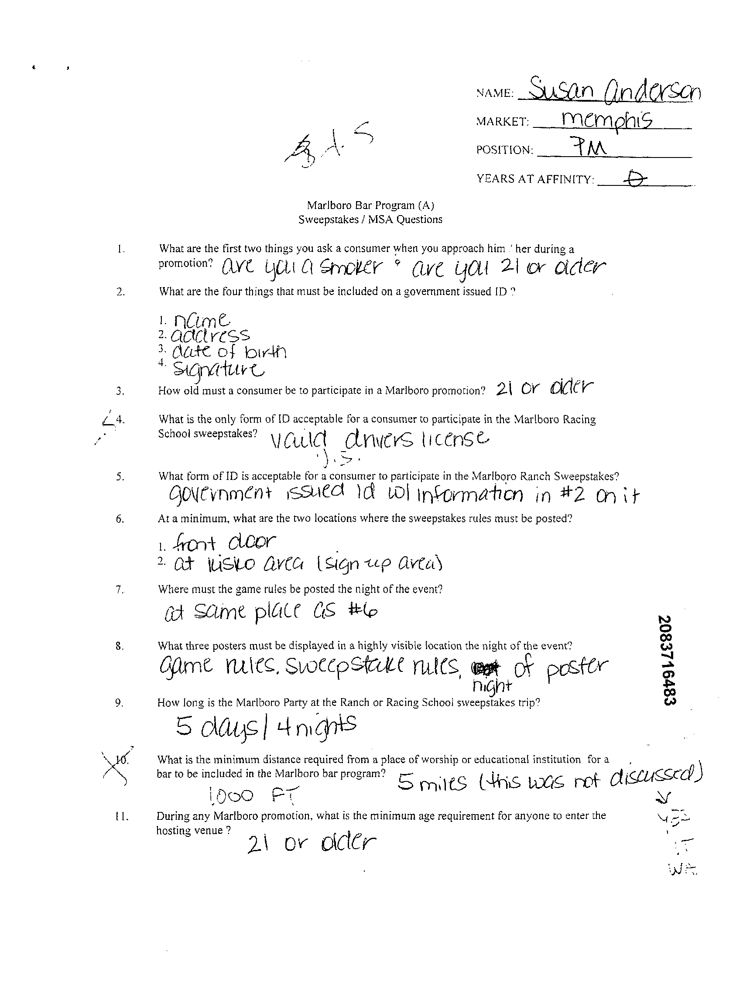 NAME: Susan Anderson
MARKET: memphis
A.S
POSITION: PM
YEARS AT AFFINITY: 0
Marlboro Bar Program (A)
Sweepstakes / MSA Questions
1. What are the first two things you ask a consumer when you approach him / her during a
promotion? are you a smoker & are you 21 or older
2. What are the four things that must be included on a government issued ID ?
1. name
2. address
3. date of birth
4. signature
3. How old must a consumer be to participate in a Marlboro promotion? 21 or older
4. What is the only form of ID acceptable for a consumer to participate in the Marlboro Racing
School sweepstakes? valid drivers license
U.S.
5. What form of ID is acceptable for a consumer to participate in the Marlboro Ranch Sweepstakes?
government issued id w/ information in #2 on it
6. At a minimum, what are the two locations where the sweepstakes rules must be posted?
1. front door
2. at kisko area (sign-up area)
7. Where must the game rules be posted the night of the event?
at same place as #6
8. What three posters must be displayed in a highly visible location the night of the event?
game rules, sweepstake rules, of poster
night
9. How long is the Marlboro Party at the Ranch or Racing School sweepstakes trip?
5 days / 4 nights
10. What is the minimum distance required from a place of worship or educational institution for a
bar to be included in the Marlboro bar program? 5 miles (this was not discussed)
1,000 FT
11. During any Marlboro promotion, what is the minimum age requirement for anyone to enter the
hosting venue ? 21 or older
IT
WA
2083716483